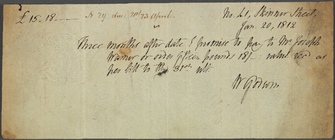 £15.18.— No. 41, Skinner Street,
Jan. 20, 1812
Three months after date I promise to pay to Mr Joseph
Warner or order fifteen pounds 18/- value recd as
per bill to the 31st ult.
W Godwin